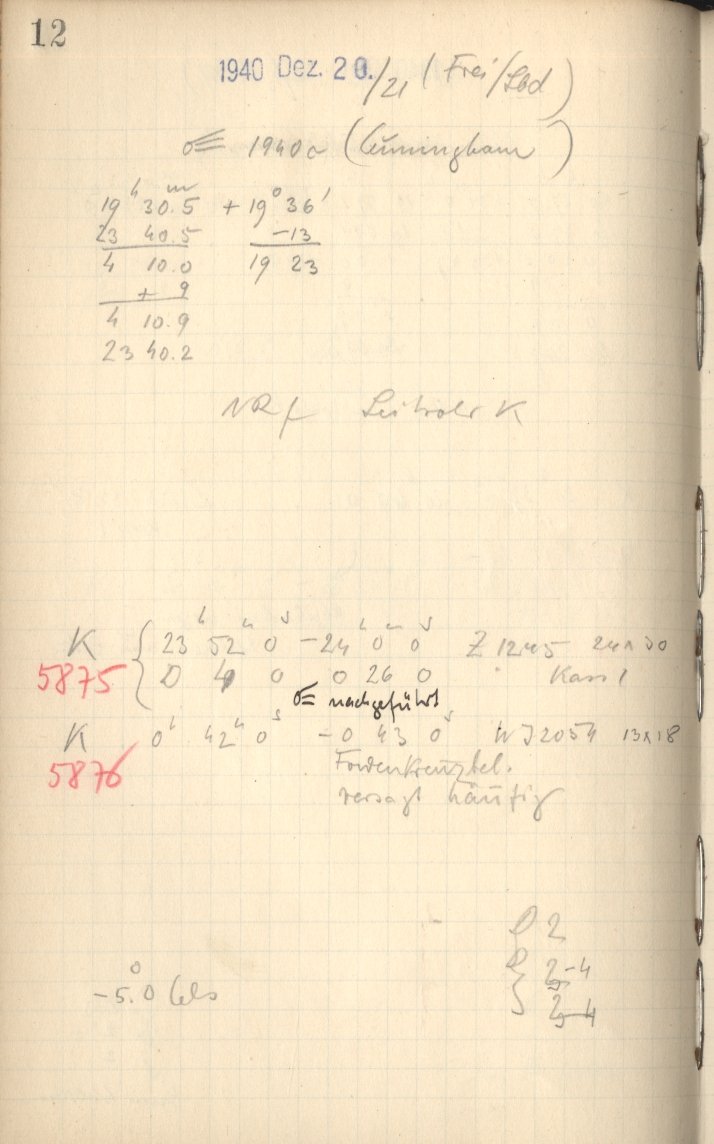 12
1940 Dez. 20./21 (Frei/Lbd)
☄ 1940c (Cunningham)
19ʰ 30.5ᵐ + 19° 36'
23 40.5 -13
4 10.0 19 23
+ 9
4 10.9
23 40.2
NRf Leitrohr K
K { 23ʰ 52ᵐ 0ˢ -24ʰ 0ᵐ 0ˢ Z 1245 24x30
5875 0 4 0 0 26 0 " Kass 1
☄ nachgeführt
K 0ʰ 42ᵐ 0ˢ -0 43 0ˢ WJ2054 13x18
5876 Fadenkreuzbel.
versagt häufig
2
-5.0° Cels 2-4
2-4